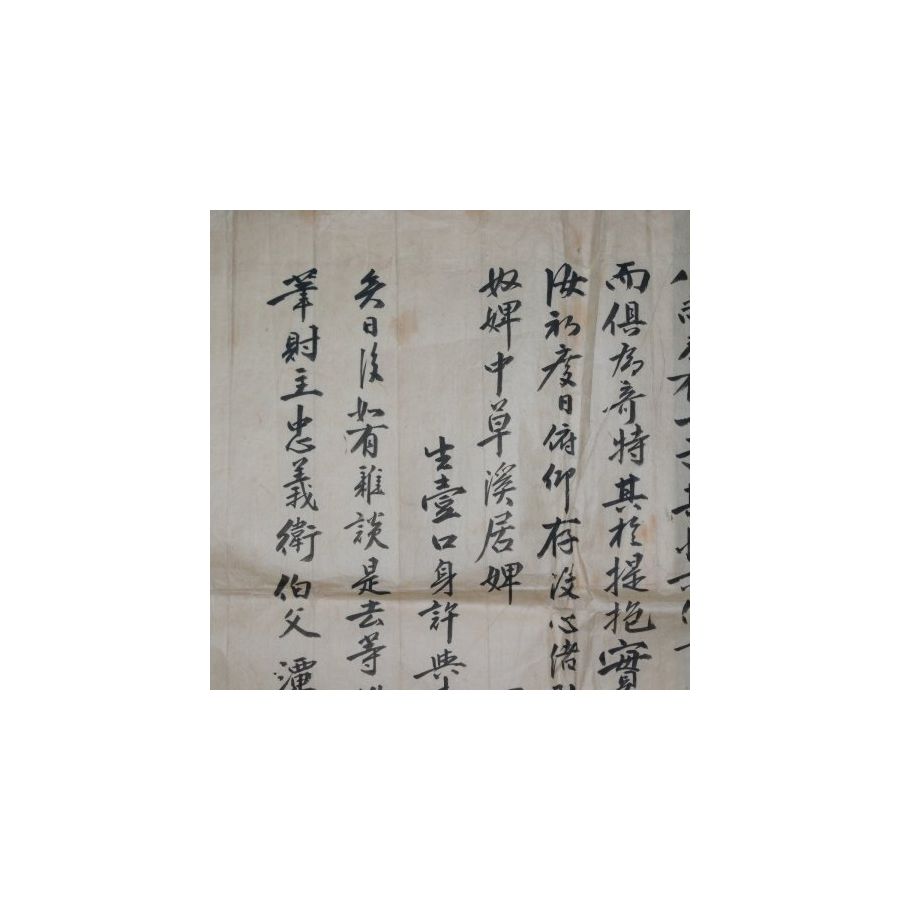 而俱爲奇特其於提抱實
汝初度日俯仰存沒心緖
奴婢中草溪居婢
生壹口身許與
矣日後如有雜談是去等
筆財主忠義衛伯父